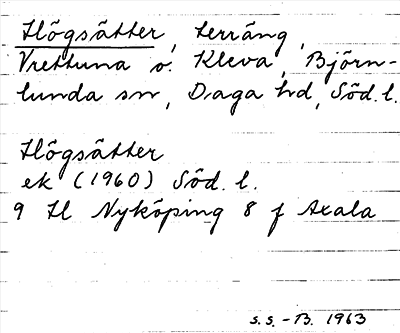 Högsätter, terräng,
Vrettuna o. Kleva, Björn-
lunda sn, Daga hd, Söd. l.
Högsätter
ek (1960) Söd. l.
9 H Nyköping 8 f Axala
S.S. - B. 1963